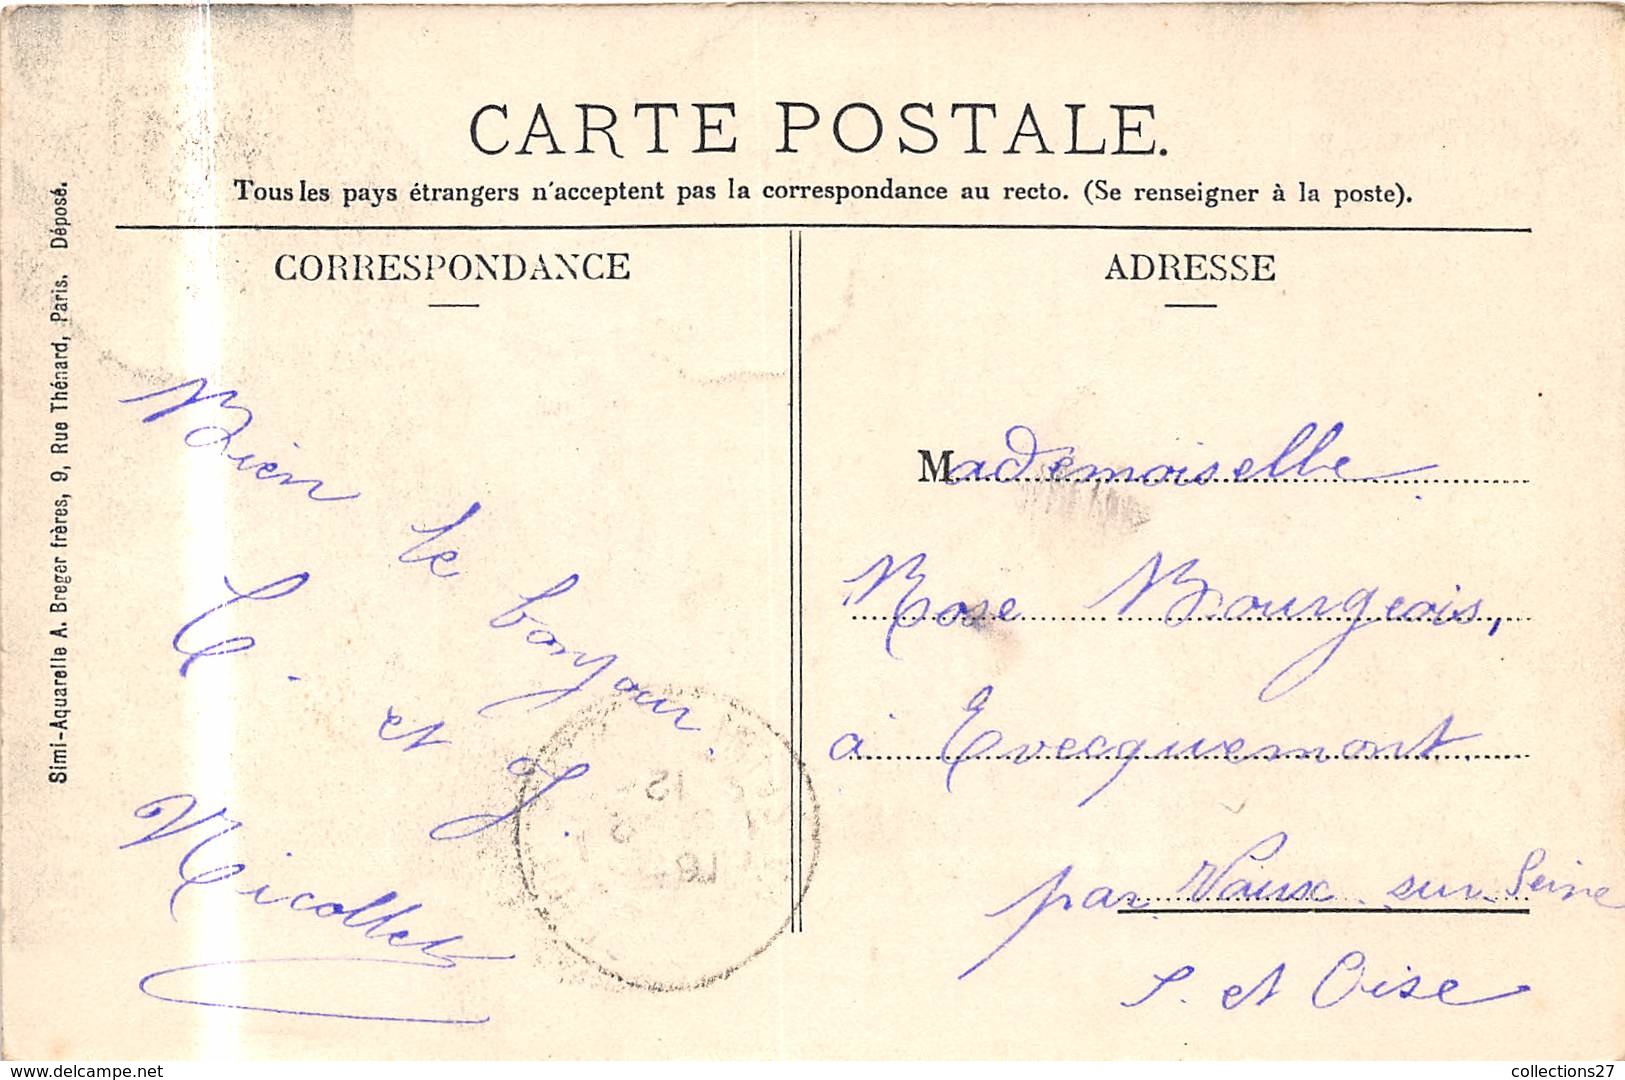 CARTE POSTALE.
Tous les pays étrangers n'acceptent pas la correspondance au recto. (Se renseigner à la poste).
CORRESPONDANCE
ADRESSE
Simi-Aquarelle A. Breger frères, 9, Rue Thénard, Paris. Déposé.
Bien le bonjour.
C. et J.
Nicollet
Mademoiselle
Rose Bourgeois,
à Evecquemont
par Vaux sur Seine
S. et Oise
www.delcampe.net
collections27